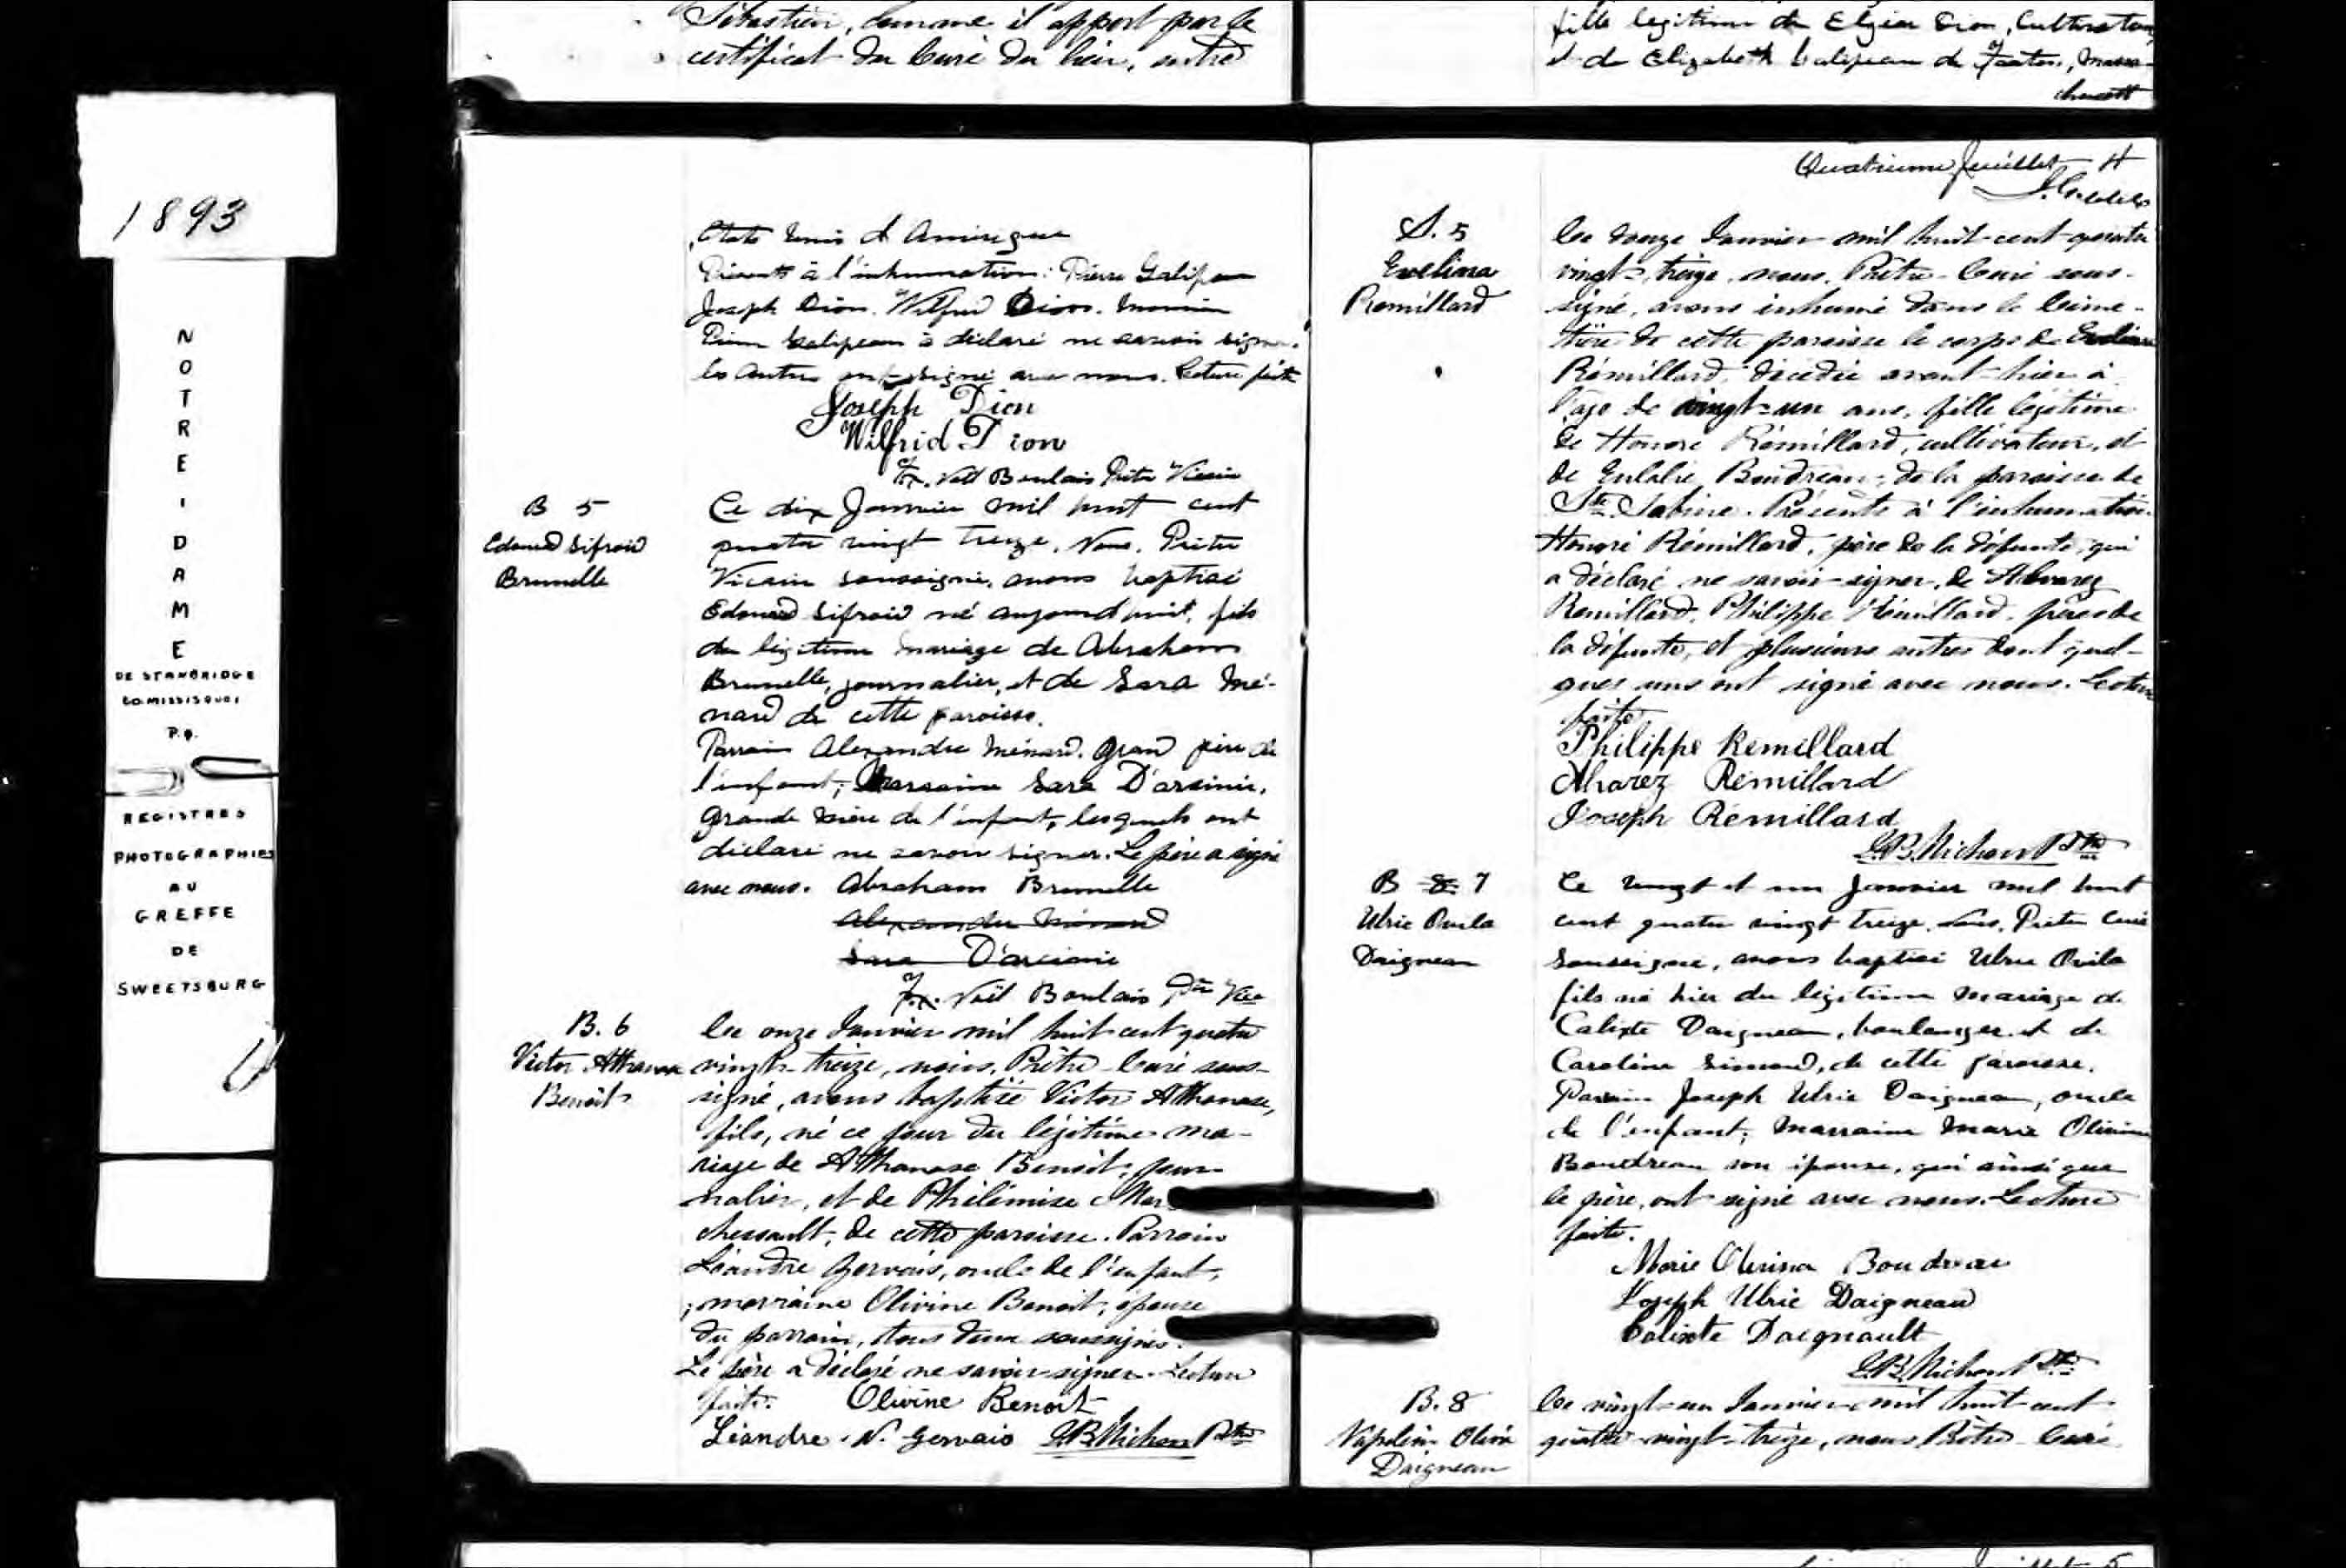 Sébastien, comme il appert par le
certificat du Curé du lieu, entre
fille legitime de Elzéar Dion, Cultivateur,
et de Elizabeth Galipeau de Massa-
chusett
1893
NOTRE-DAME
DE STANBRIDGE
Co MISSISQUOI
P.Q.
REGISTRES
PHOTOGRAPHIES
AU
GREFFE
DE
SWEETSBURG
Etats Unis d'Amérique
Présents à l'inhumation: Pierre Galipeau
Joseph Dion. Wilfrid Dion. Monsieur
Pierre Galipeau a déclaré ne savoir signer.
les autres ont signé avec nous. Lecture faite
Joseph Dion
Wilfrid Dion
Fx. Noël Boulais Prêtre Vicaire
B 5
Edouard Sifroid
Brunelle
Ce dix Janvier mil huit cent
quatre vingt treize, Nous, Prêtre
Vicaire soussigné, avons baptisé
Edouard Sifroid né aujourd'huit, fils
du légitime mariage de Abraham
Brunelle, journalier, et de Sara Mé-
nard de cette paroisse.
Parrain Alexandre Ménard, grand père de
l'enfant; Marraine Sara
Grande mère de l'enfant, lesquels ont
déclaré ne savoir signer. Le père a signé
avec nous. Abraham Brunelle
Alexandre Ménard
Sara
Fx. Noël Boulais Ptre Vic
B. 6
Victor Athanase
Benoit
Ce onze Janvier mil huit cent quatre
vingt-treize, nous, Prêtre-Curé sous-
signé, avons baptisé Victor Athanase,
fils, né ce jour du légitime ma-
riage de Athanase Benoit, jour-
nalier, et de Philémise Mar
chessault, de cette paroisse. Parrain
Léandre Gervais, oncle de l'enfant,
; marraine Olivine Benoit, épouse
du parrain, tous deux soussignés.
Le père a déclaré ne savoir signer. Lecture
faite. Olivine Benoit
Léandre. N. Gervais J.B. Michon Ptre
Quatrième feuillet 4
S. 5
Evelina
Remillard
Ce douze Janvier mil huit-cent-quatre
vingt-treize, nous, Prêtre-Curé sous-
signé, avons inhumé dans le Cime-
tière de cette paroisse le corps de Evelina
Rémillard, décédée avant-hier à
l'âge de vingt-un ans, fille légitime
de Honoré Rémillard, cultivateur, et
de Eulalie Boudreau, de la paroisse de
Ste. Sabine. Présents à l'inhumation
Honoré Rémillard, père de la défunte, qui
a déclaré ne savoir signer, de Alvarez
Remillard, Philippe Rémillard, frères de
la défunte, et plusieurs autres dont quel-
ques uns ont signé avec nous. Lecture
faite.
Philippe Remillard
Alvarez Rémillard
Joseph Rémillard
J.B. Michon Ptre
B 8 7
Ulric Ovila
Daigneau
Ce vingt et un Janvier mil huit
cent quatre vingt treize, nous, Prêtre Curé
soussigné, avons baptisé Ulric Ovila
fils né hier du légitime mariage de
Calixte Daigneau, boulanger, et de
Caroline Simard, de cette paroisse.
Parrain Joseph Ulric Daigneau, oncle
de l'enfant; marraine Marie Olivina
Boudreau son épouse, qui ainsi que
le père, ont signé avec nous. Lecture
faite.
Marie Olivina Boudreau
Joseph Ulric Daigneau
Calixte Daignault
J.B. Michon Ptre
B. 8
Napoléon Oliva
Daigneau
Ce vingt-un Janvier mil huit-cent
quatre-vingt-treize, nous, Prêtre-Curé